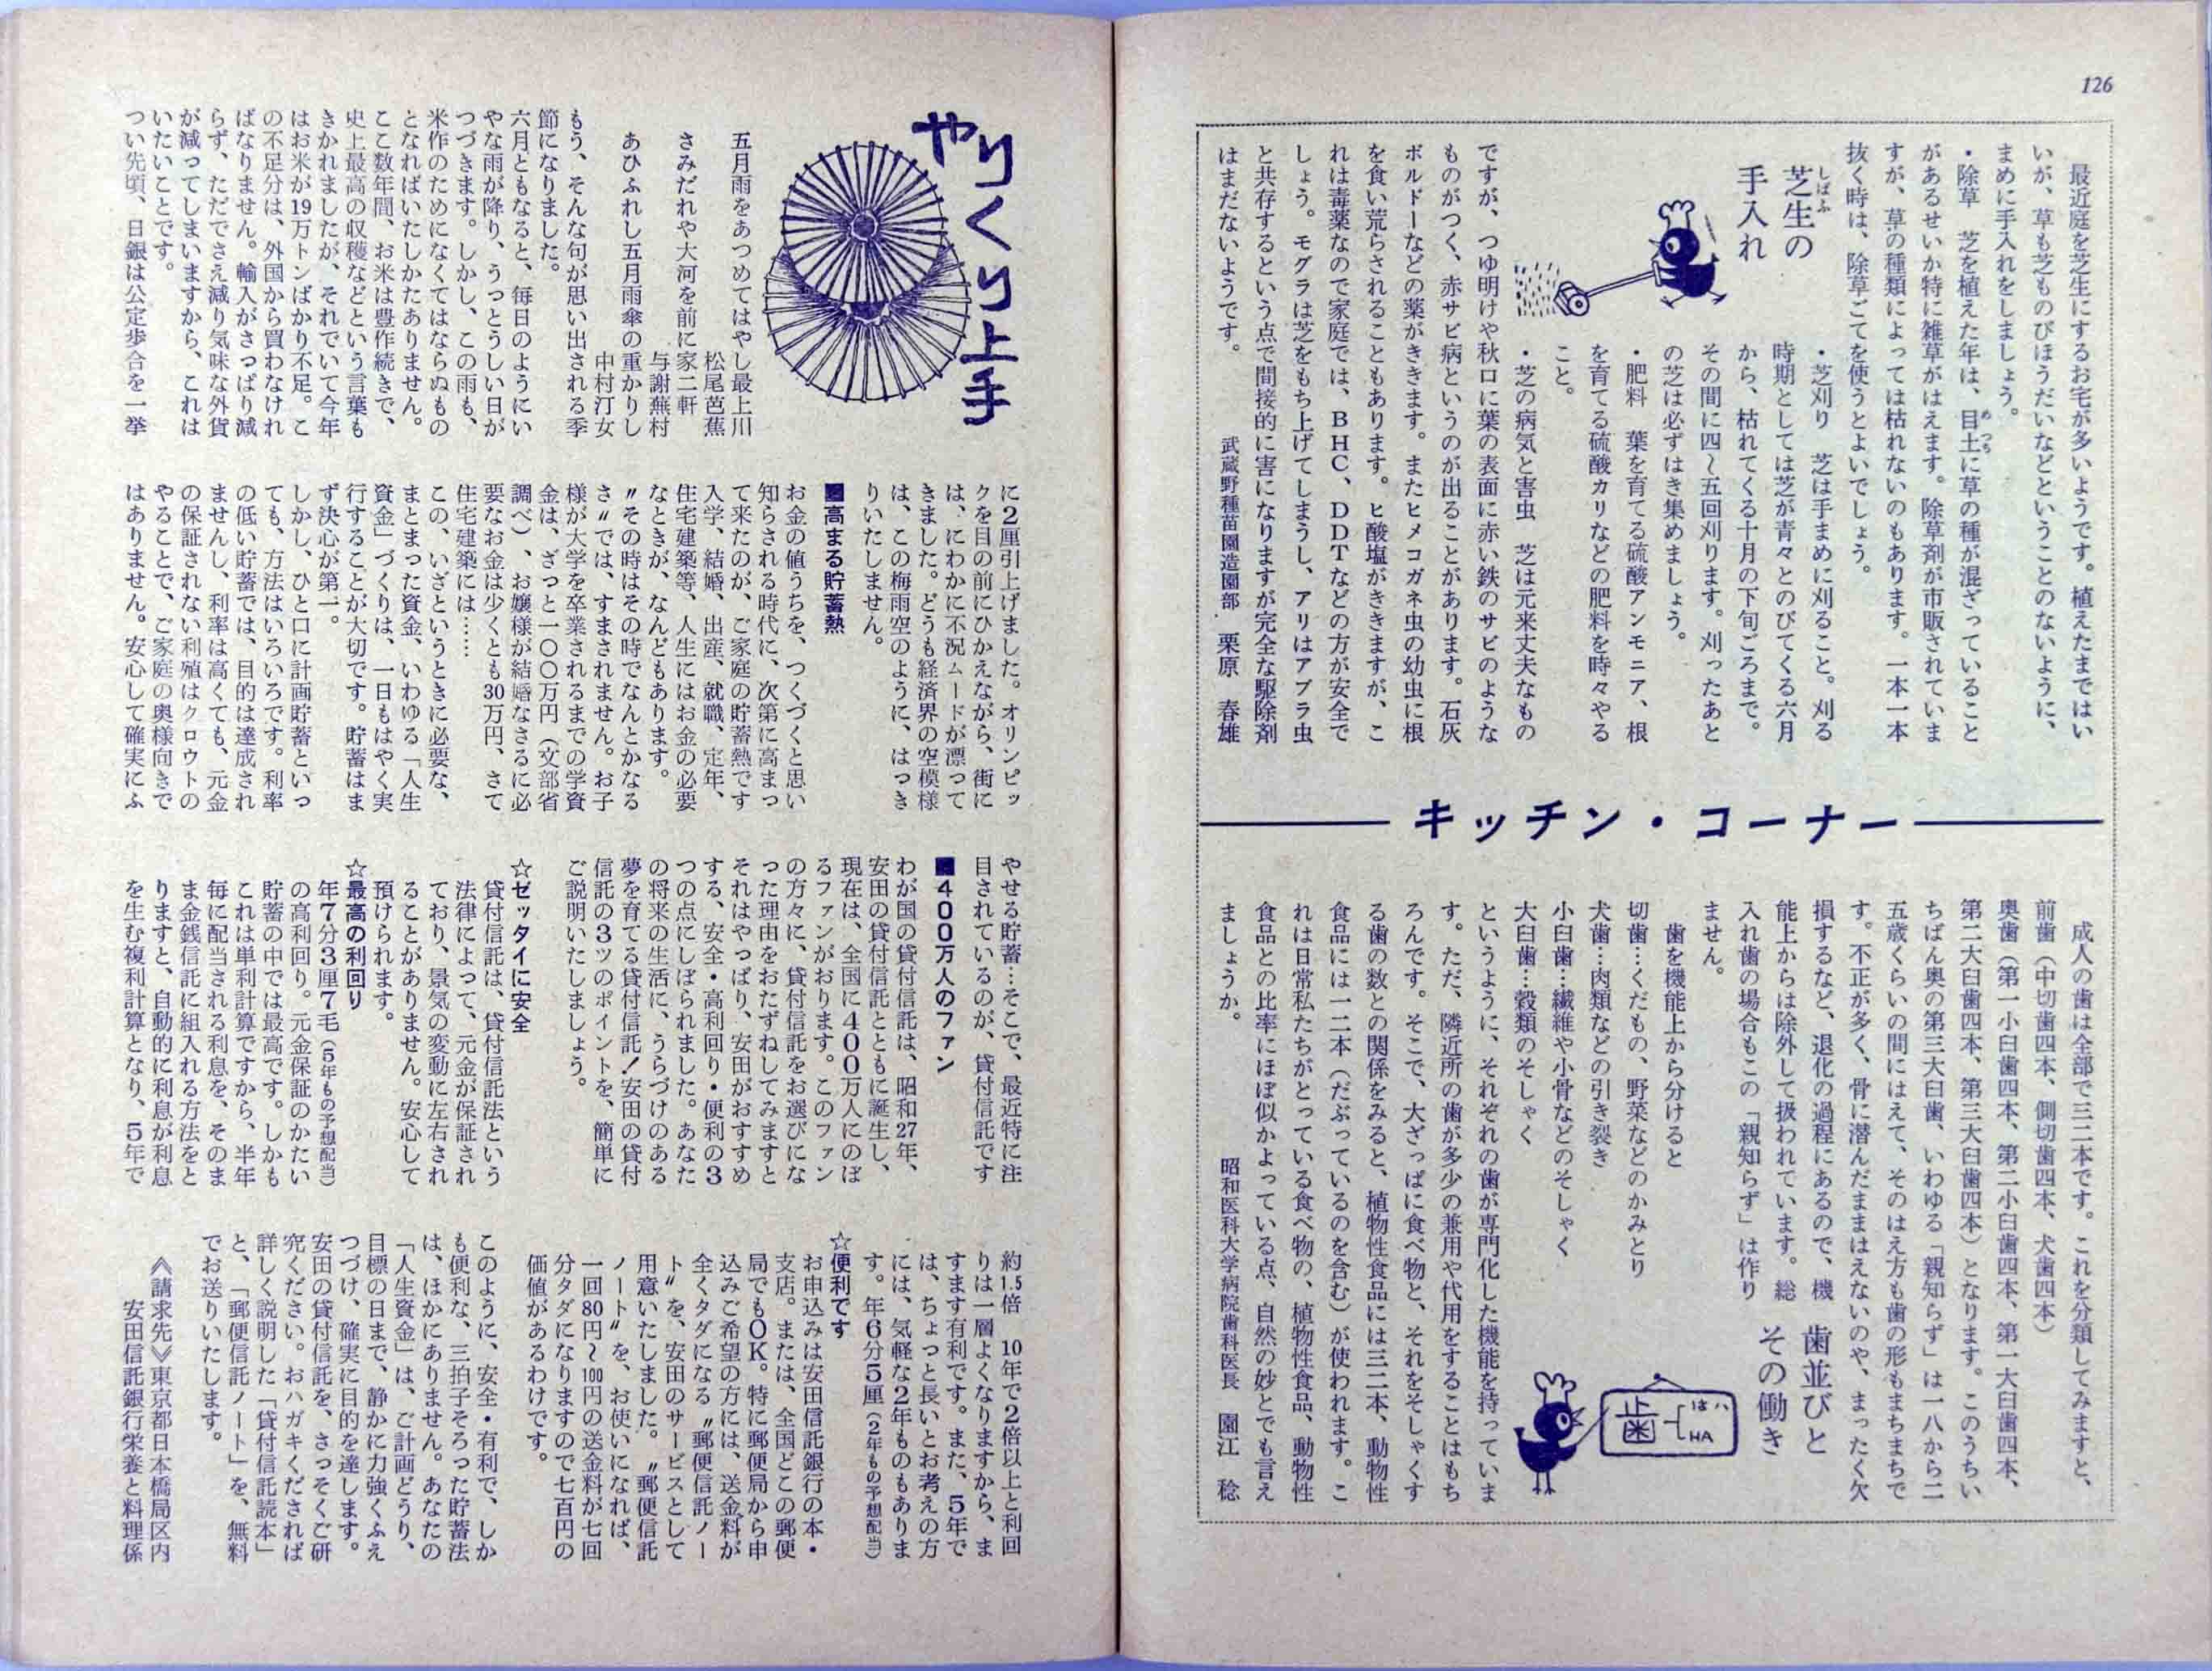 126
キッチン・コーナー
芝生の
しばふ
手入れ
最近庭を芝生にするお宅が多いようです。植えたまではい
いが、草も芝ものびほうだいなどということのないように、
まめに手入れをしましょう。
・除草　芝を植えた年は、目土に草の種が混ざっていること
めつち
があるせいか特に雑草がはえます。除草剤が市販されていま
すが、草の種類によっては枯れないのもあります。一本一本
抜く時は、除草ごてを使うとよいでしょう。
・芝刈り　芝は手まめに刈ること。刈る
時期としては芝が青々とのびてくる六月
から、枯れてくる十月の下旬ごろまで。
その間に四〜五回刈ります。刈ったあと
の芝は必ずはき集めましょう。
・肥料　葉を育てる硫酸アンモニア、根
を育てる硫酸カリなどの肥料を時々やる
こと。
・芝の病気と害虫　芝は元来丈夫なもの
ですが、つゆ明けや秋口に葉の表面に赤い鉄のサビのような
ものがつく、赤サビ病というのが出ることがあります。石灰
ボルドーなどの薬がききます。またヒメコガネ虫の幼虫に根
を食い荒らされることもあります。ヒ酸塩がききますが、こ
れは毒薬なので家庭では、BHC、DDTなどの方が安全で
しょう。モグラは芝をもち上げてしまうし、アリはアブラ虫
と共存するという点で間接的に害になりますが完全な駆除剤
はまだないようです。
武蔵野種苗園造園部　栗原　春雄
歯並びと
その働き
歯
は ハ
HA
成人の歯は全部で三二本です。これを分類してみますと、
前歯（中切歯四本、側切歯四本、犬歯四本）
奥歯（第一小臼歯四本、第二小臼歯四本、第一大臼歯四本、
第二大臼歯四本、第三大臼歯四本）となります。このうちい
ちばん奥の第三大臼歯、いわゆる「親知らず」は一八から二
五歳くらいの間にはえて、そのはえ方も歯の形もまちまちで
す。不正が多く、骨に潜んだままはえないのや、まったく欠
損するなど、退化の過程にあるので、機
能上からは除外して扱われています。総
入れ歯の場合もこの「親知らず」は作り
ません。
歯を機能上から分けると
切歯…くだもの、野菜などのかみとり
犬歯…肉類などの引き裂き
小臼歯…繊維や小骨などのそしゃく
大臼歯…穀類のそしゃく
というように、それぞれの歯が専門化した機能を持っていま
す。ただ、隣近所の歯が多少の兼用や代用をすることはもち
ろんです。そこで、大ざっぱに食べ物と、それをそしゃくす
る歯の数との関係をみると、植物性食品には三二本、動物性
食品には一二本（だぶっているのを含む）が使われます。こ
れは日常私たちがとっている食べ物の、植物性食品、動物性
食品との比率にほぼ似かよっている点、自然の妙とでも言え
ましょうか。
昭和医科大学病院歯科医長　園江　稔
やりくり上手
五月雨をあつめてはやし最上川
松尾芭蕉
さみだれや大河を前に家二軒
与謝蕪村
あひふれし五月雨傘の重かりし
中村汀女
もう、そんな句が思い出される季
節になりました。
六月ともなると、毎日のようにい
やな雨が降り、うっとうしい日が
つづきます。しかし、この雨も、
米作のためになくてはならぬもの
となればいたしかたありません。
ここ数年間、お米は豊作続きで、
史上最高の収穫などという言葉も
きかれましたが、それでいて今年
はお米が19万トンばかり不足。こ
の不足分は、外国から買わなけれ
ばなりません。輸入がさっぱり減
らず、ただでさえ減り気味な外貨
が減ってしまいますから、これは
いたいことです。
つい先頃、日銀は公定歩合を一挙
に2厘引上げました。オリンピッ
クを目の前にひかえながら、街に
は、にわかに不況ムードが漂って
きました。どうも経済界の空模様
は、この梅雨空のように、はっき
りいたしません。
■高まる貯蓄熱
お金の値うちを、つくづくと思い
知らされる時代に、次第に高まっ
て来たのが、ご家庭の貯蓄熱です
入学、結婚、出産、就職、定年、
住宅建築等、人生にはお金の必要
なときが、なんどもあります。
〝その時はその時でなんとかなる
さ〟では、すまされません。お子
様が大学を卒業されるまでの学資
金は、ざっと一〇〇万円（文部省
調べ）、お嬢様が結婚なさるに必
要なお金は少くとも30万円、さて
住宅建築には……
この、いざというときに必要な、
まとまった資金、いわゆる「人生
資金」づくりは、一日もはやく実
行することが大切です。貯蓄はま
ず決心が第一。
しかし、ひと口に計画貯蓄といっ
ても、方法はいろいろです。利率
の低い貯蓄では、目的は達成され
ませんし、利率は高くても、元金
の保証されない利殖はクロウトの
やることで、ご家庭の奥様向きで
はありません。安心して確実にふ
やせる貯蓄…そこで、最近特に注
目されているのが、貸付信託です
■400万人のファン
わが国の貸付信託は、昭和27年、
安田の貸付信託とともに誕生し、
現在は、全国に400万人にのぼ
るファンがおります。このファン
の方々に、貸付信託をお選びにな
った理由をおたずねしてみますと
それはやっぱり、安田がおすすめ
する、安全・高利回り・便利の3
つの点にしぼられました。あなた
の将来の生活に、うらづけのある
夢を育てる貸付信託！安田の貸付
信託の3ツのポイントを、簡単に
ご説明いたしましょう。
☆ゼッタイに安全
貸付信託は、貸付信託法という
法律によって、元金が保証され
ており、景気の変動に左右され
ることがありません。安心して
預けられます。
☆最高の利回り
年7分3厘7毛（5年もの予想配当）
の高利回り。元金保証のかたい
貯蓄の中では最高です。しかも
これは単利計算ですから、半年
毎に配当される利息を、そのま
ま金銭信託に組入れる方法をと
りますと、自動的に利息が利息
を生む複利計算となり、5年で
約1.5倍　10年で2倍以上と利回
りは一層よくなりますから、ま
すます有利です。また、5年で
は、ちょっと長いとお考えの方
には、気軽な2年ものもありま
す。年6分5厘（2年もの予想配当）
☆便利です
お申込みは安田信託銀行の本・
支店。または、全国どこの郵便
局でもOK。特に郵便局から申
込みご希望の方には、送金料が
全くタダになる〝郵便信託ノー
ト〟を、安田のサービスとして
用意いたしました。〝郵便信託
ノート〟を、お使いになれば、
一回80円〜100円の送金料が七回
分タダになりますので七百円の
価値があるわけです。
このように、安全・有利で、しか
も便利な、三拍子そろった貯蓄法
は、ほかにありません。あなたの
「人生資金」は、ご計画どうり、
目標の日まで、静かに力強くふえ
つづけ、確実に目的を達します。
安田の貸付信託を、さっそくご研
究ください。おハガキくだされば
詳しく説明した「貸付信託読本」
と、「郵便信託ノート」を、無料
でお送りいたします。
《請求先》東京都日本橋局区内
安田信託銀行栄養と料理係